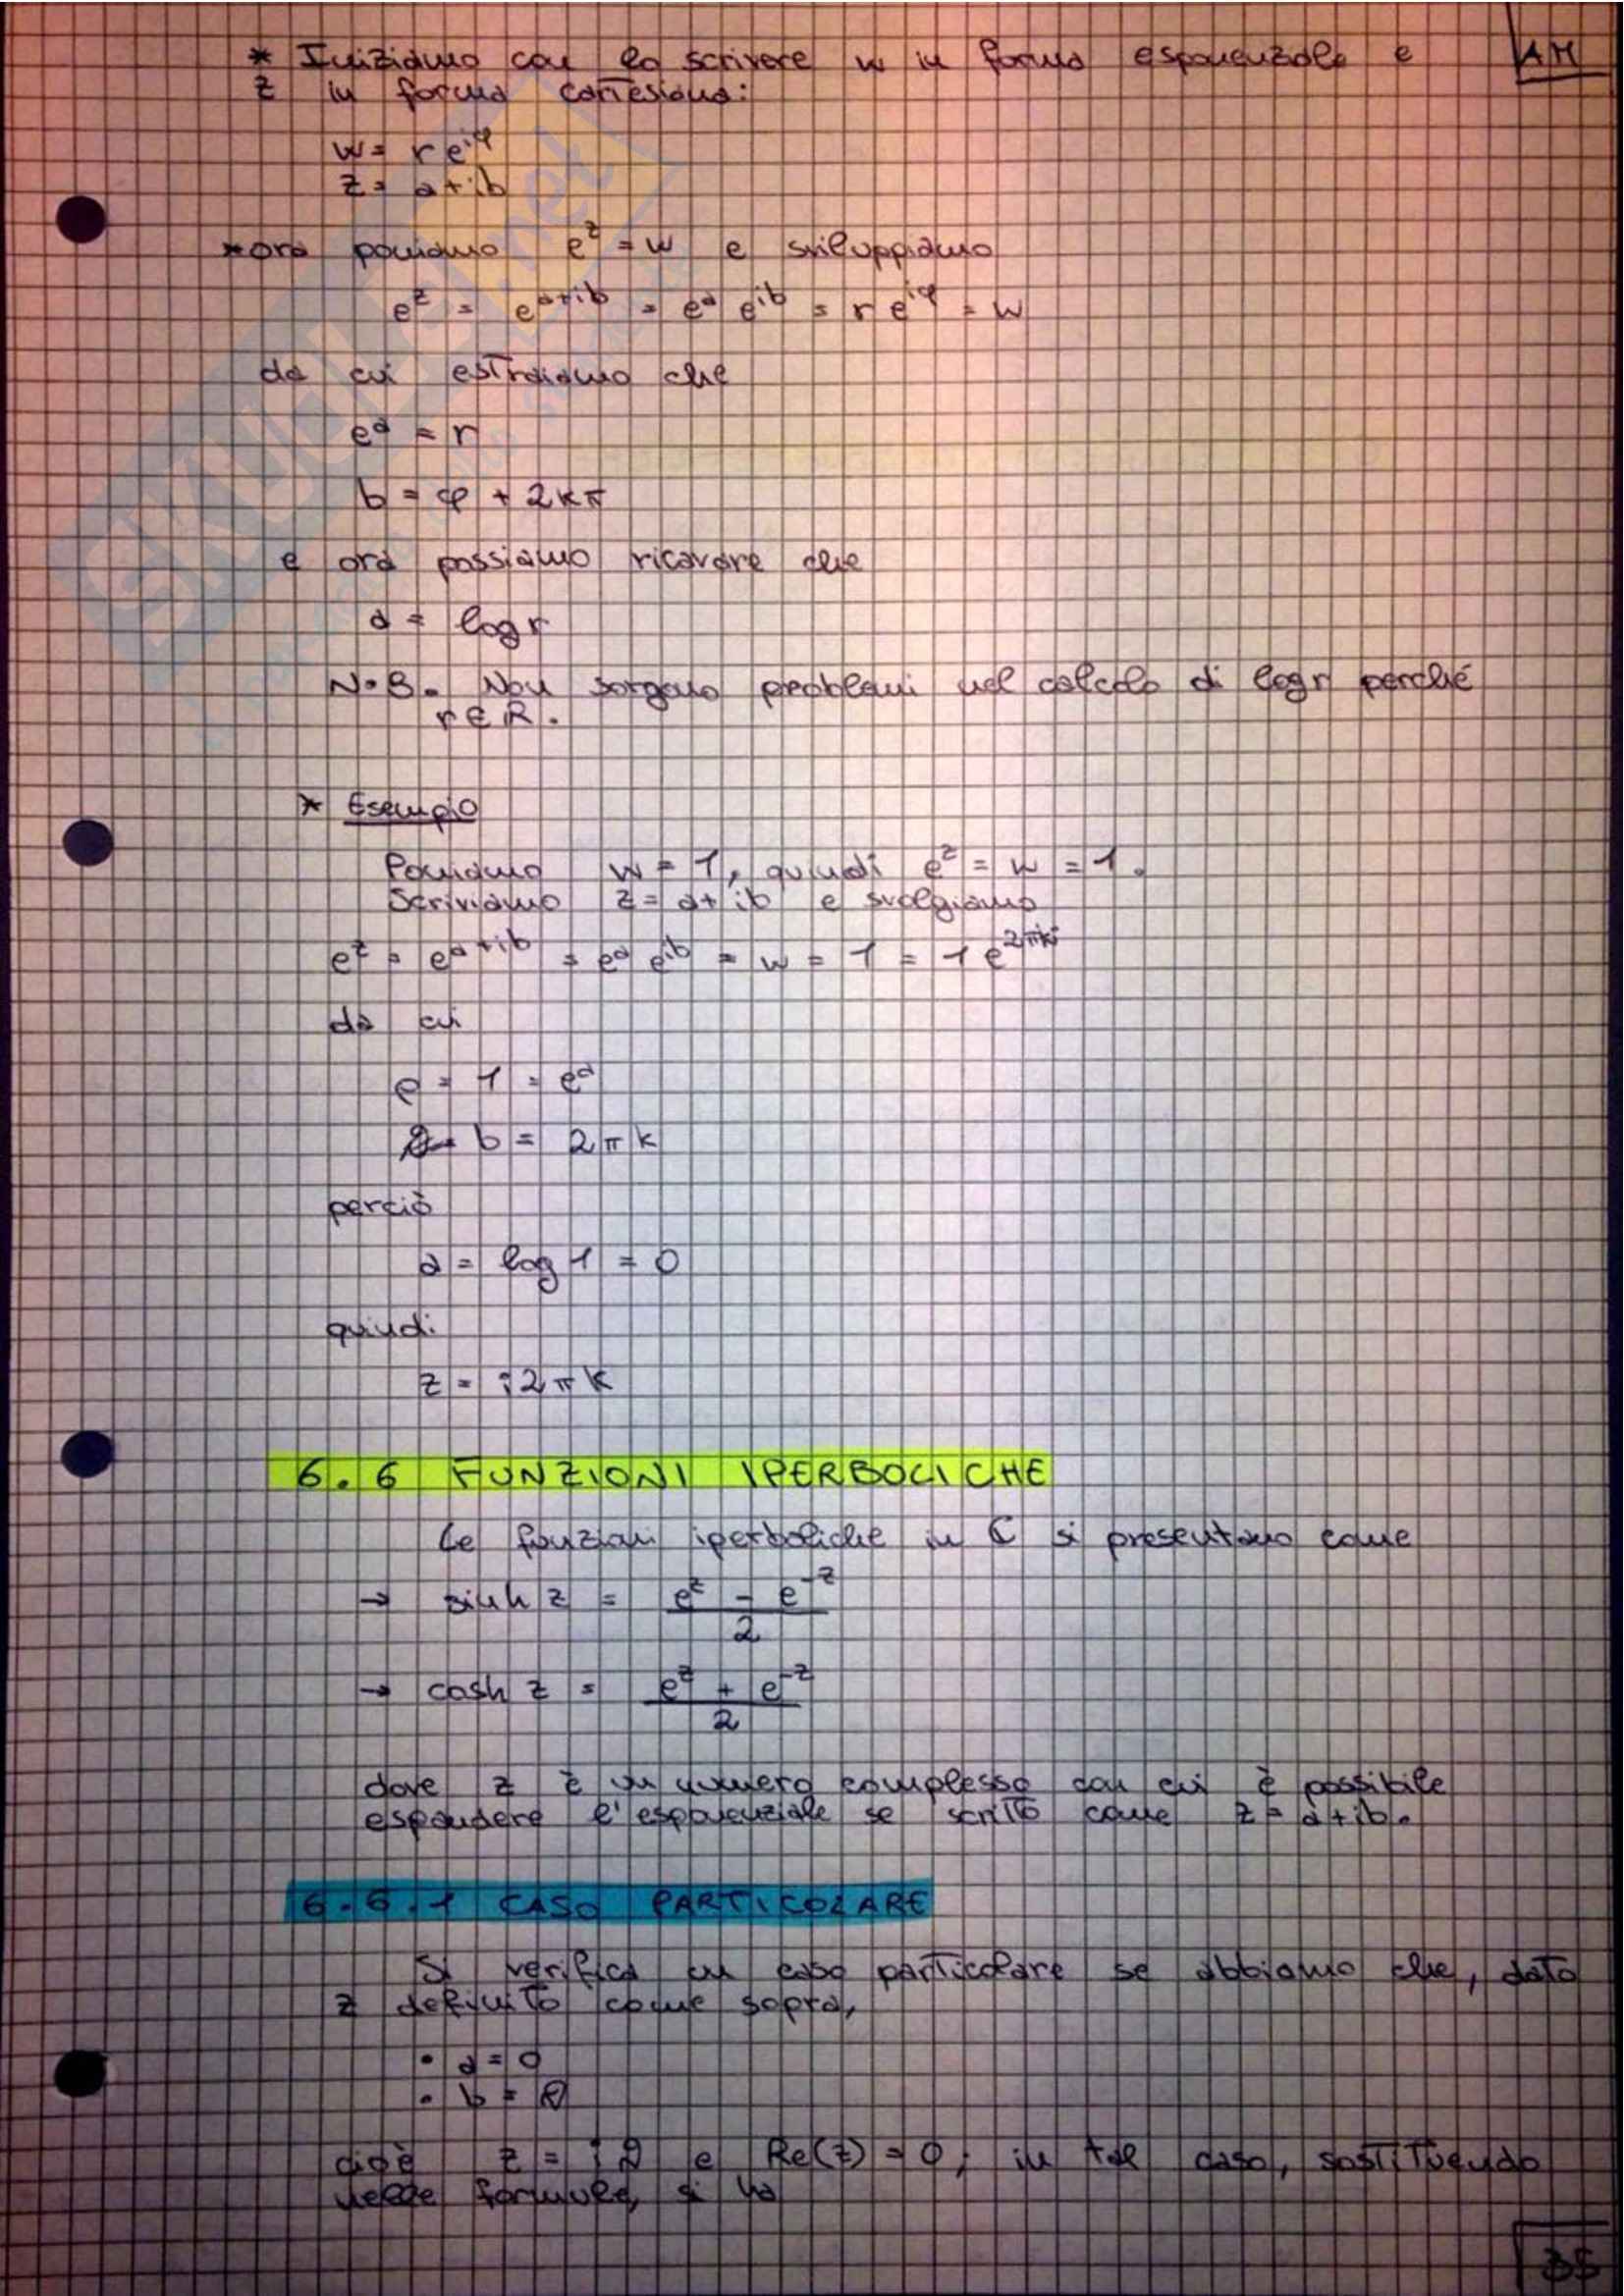 * Iniziamo con lo scrivere w in forma esponenziale e
AM
z in forma cartesiana:
w = r e^{iφ}
z = a + ib
* ora poniamo e^z = w e sviluppiamo
e^z = e^{a+ib} = e^a e^{ib} = r e^{iφ} = w
da cui estraiamo che
e^a = r
b = φ + 2kπ
e ora possiamo ricavare che
a = log r
N.B. Non sorgono problemi nel calcolo di log r perché
r ∈ R.
* Esempio
Poniamo w = 1, quindi e^z = w = 1.
Scriviamo z = a + ib e svolgiamo
e^z = e^{a+ib} = e^a e^{ib} = w = 1 = 1 e^{2πki}
da cui
ρ = 1 = e^a
b = 2πk
perciò
a = log 1 = 0
quindi
z = i2πk
6.6 FUNZIONI IPERBOLICHE
Le funzioni iperboliche in C si presentano come
→ sinh z = (e^z - e^{-z})/2
→ cosh z = (e^z + e^{-z})/2
dove z è un numero complesso con cui è possibile
espandere l'esponenziale se scritto come z = a + ib.
6.6.1 CASO PARTICOLARE
Si verifica un caso particolare se abbiamo che, dato
z definito come sopra,
• a = 0
• b = ϑ
cioè z = iϑ e Re(z) = 0; in tal caso, sostituendo
nelle formule, si ha
35
SKUOLA.net